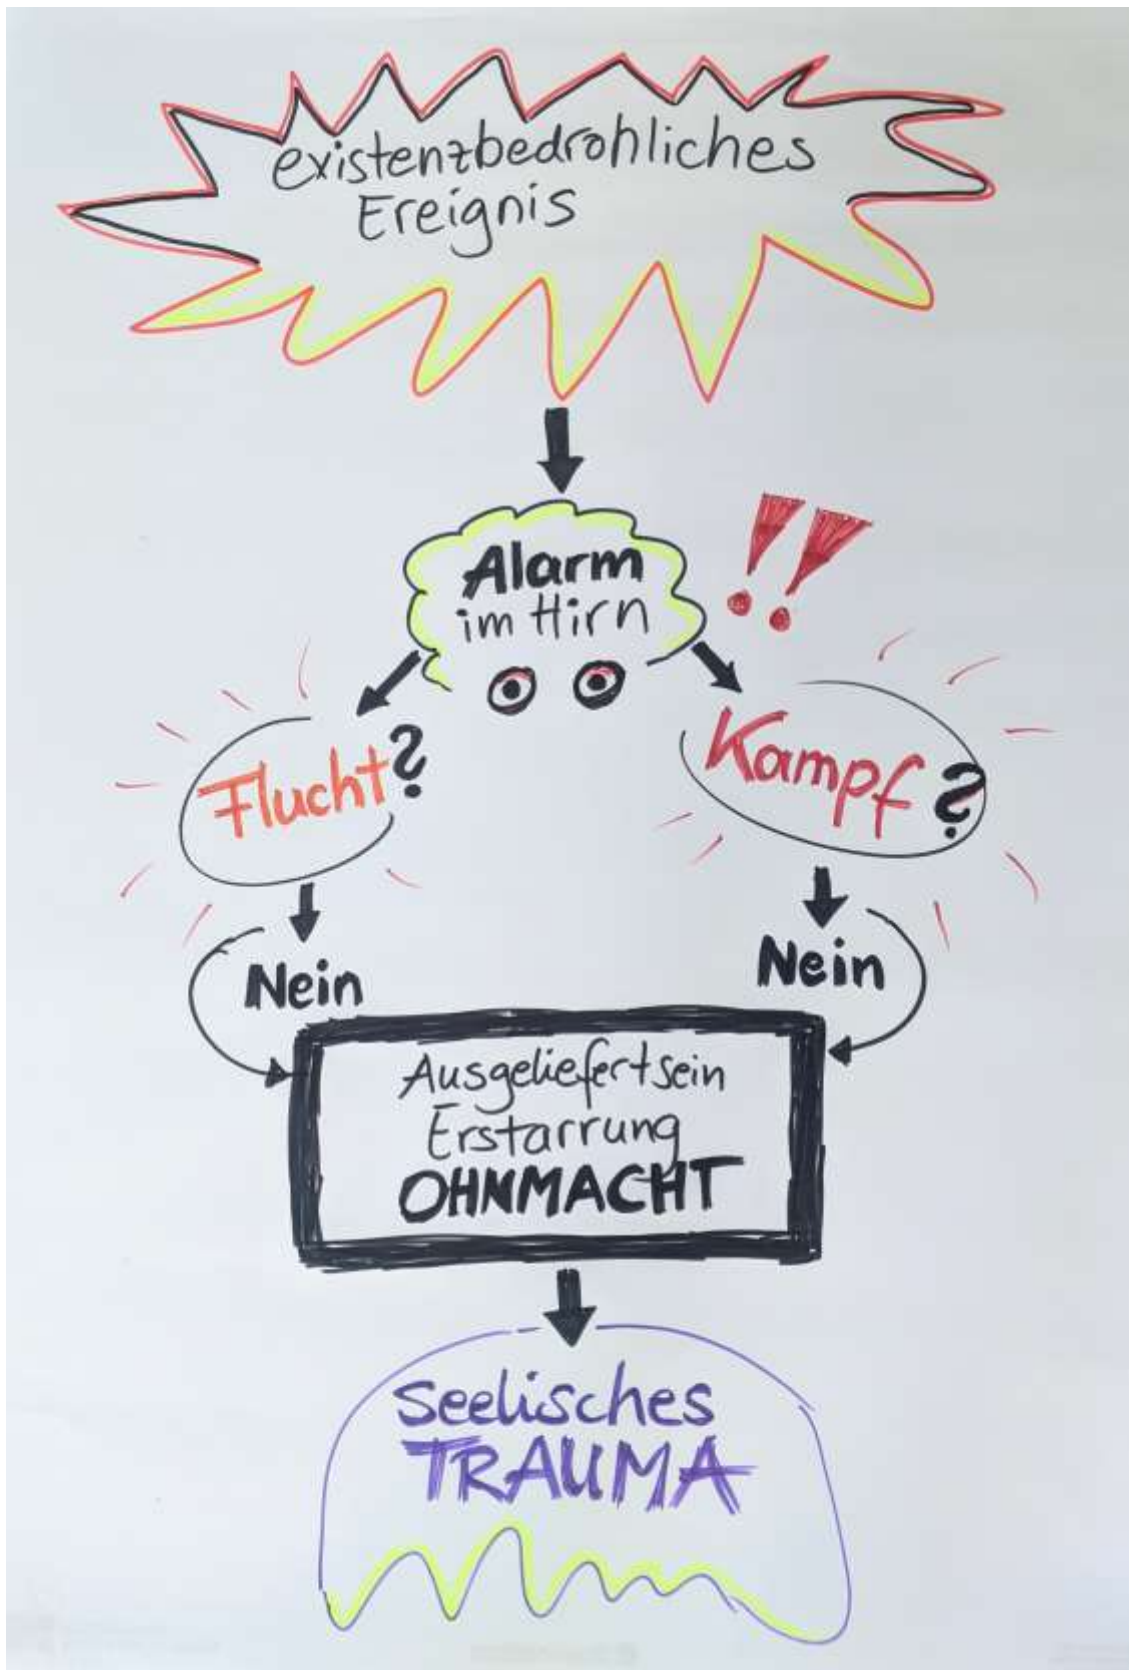 existenzbedrohliches
Ereignis
Alarm
im Hirn
!!
Flucht?
Kampf?
Nein
Nein
Ausgeliefertsein
Erstarrung
OHNMACHT
Seelisches
TRAUMA